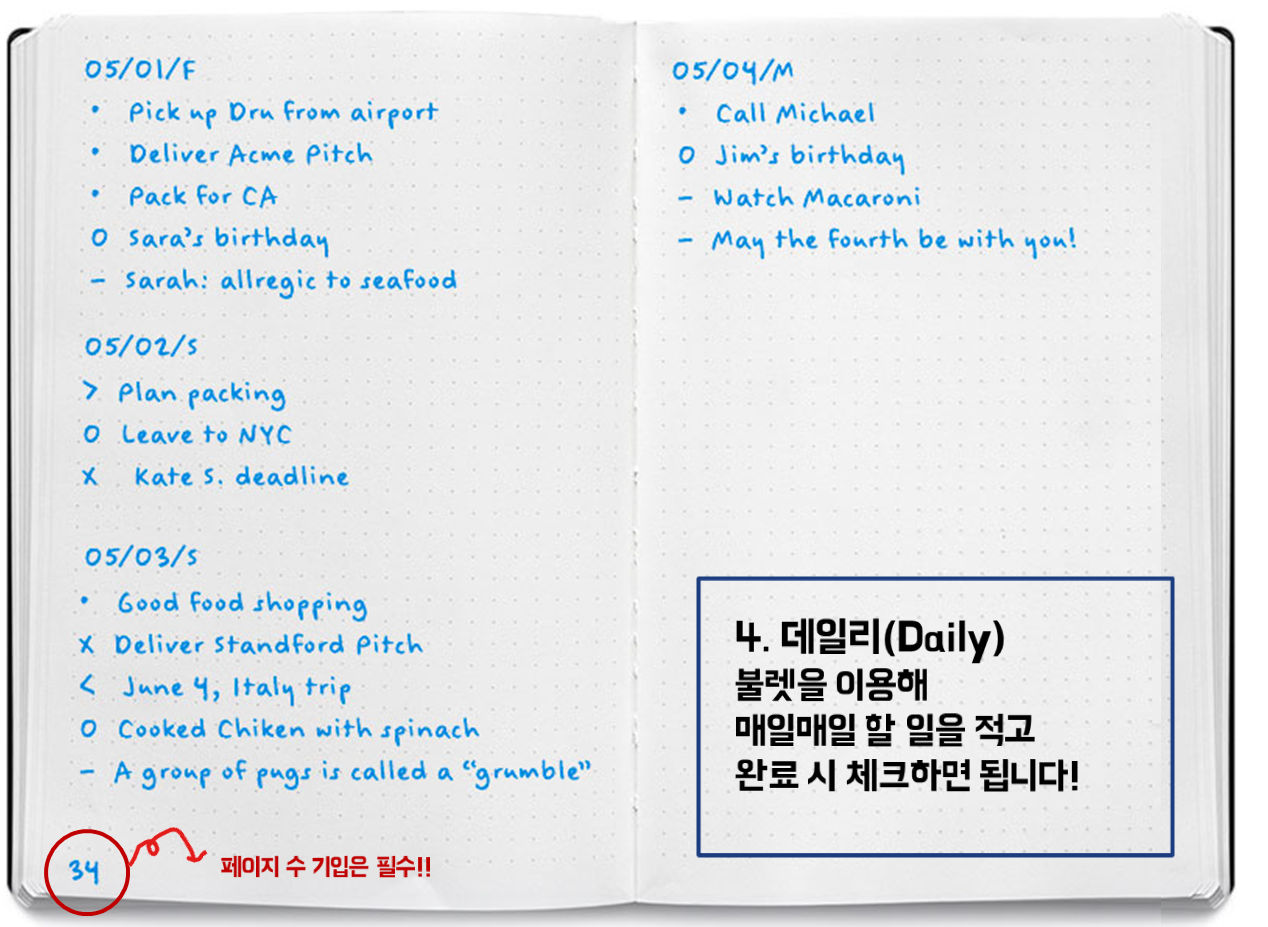 05/01/F
• Pick up Dru from airport
• Deliver Acme Pitch
• Pack for CA
O Sara's birthday
– Sarah: allregic to seafood
05/02/s
> Plan packing
O Leave to NYC
X Kate S. deadline
05/03/s
• Good food shopping
X Deliver Standford Pitch
< June 4, Italy trip
O Cooked Chiken with spinach
– A group of pugs is called a “grumble”
34
페이지 수 기입은 필수!!
05/04/M
• Call Michael
O Jim's birthday
– Watch Macaroni
– May the fourth be with you!
4. 데일리(Daily)
불렛을 이용해
매일매일 할 일을 적고
완료 시 체크하면 됩니다!